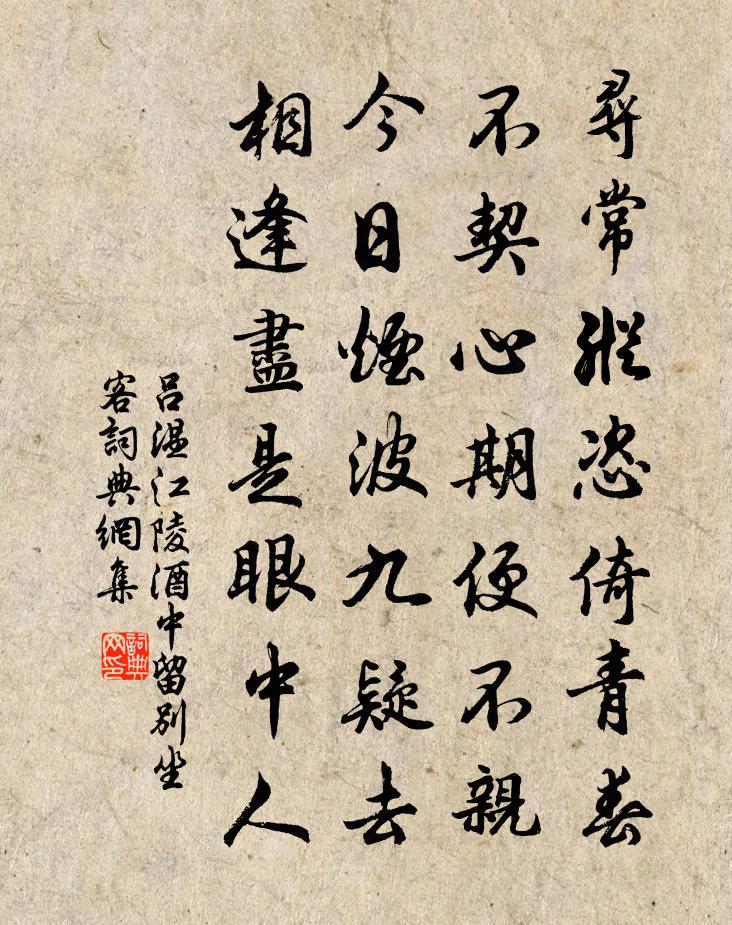 尋常縱恣倚青春
不契心期便不親
今日煙波九疑去
相逢盡是眼中人
吕温江陵酒中留別坐
客詞典網集
詞典
网印